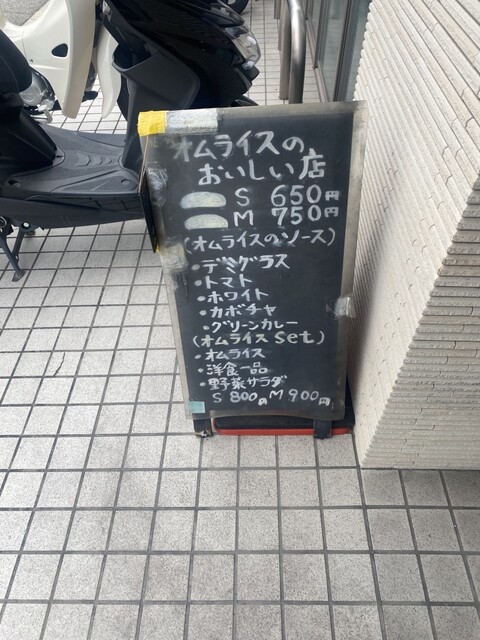 オムライスの
おいしい店
S 650円
M 750円
(オムライスのソース)
・デミグラス
・トマト
・ホワイト
・カボチャ
・グリーンカレー
(オムライス Set)
・オムライス
・洋食一品
・野菜サラダ
S 800円 M 900円